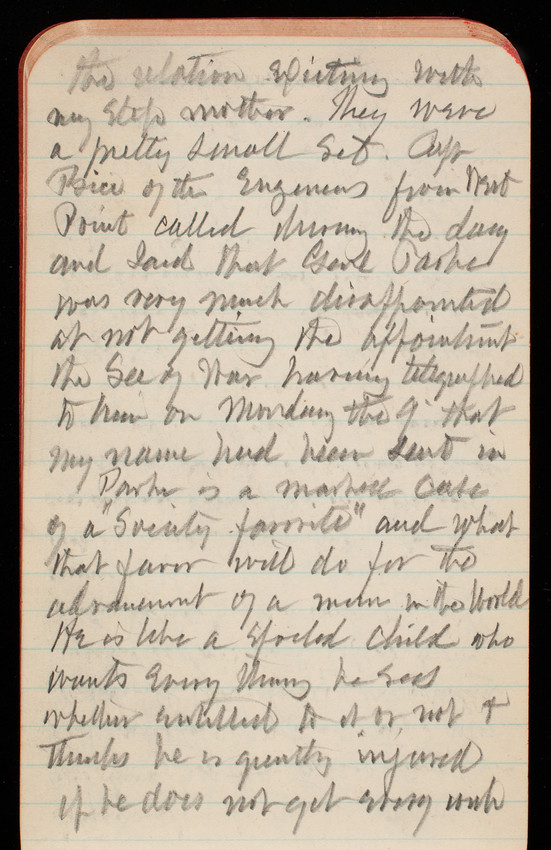 the relation existing with
my step mother. They were
a pretty small set. Cap
Price of the Engineers from West
Point called during the day
and said that Genl Parke
was very much disappointed
at not getting the appointmt
the Sec of War having telegraphed
to him on Monday the 9" that
my name had been sent in
Parke is a marked case
of a "Society favorite" and what
that favor will do for the
advancement of a man in the World
He is like a spoiled child who
wants every thing he sees
whether entitled to it or not &
thinks he is greatly injured
if he does not get every